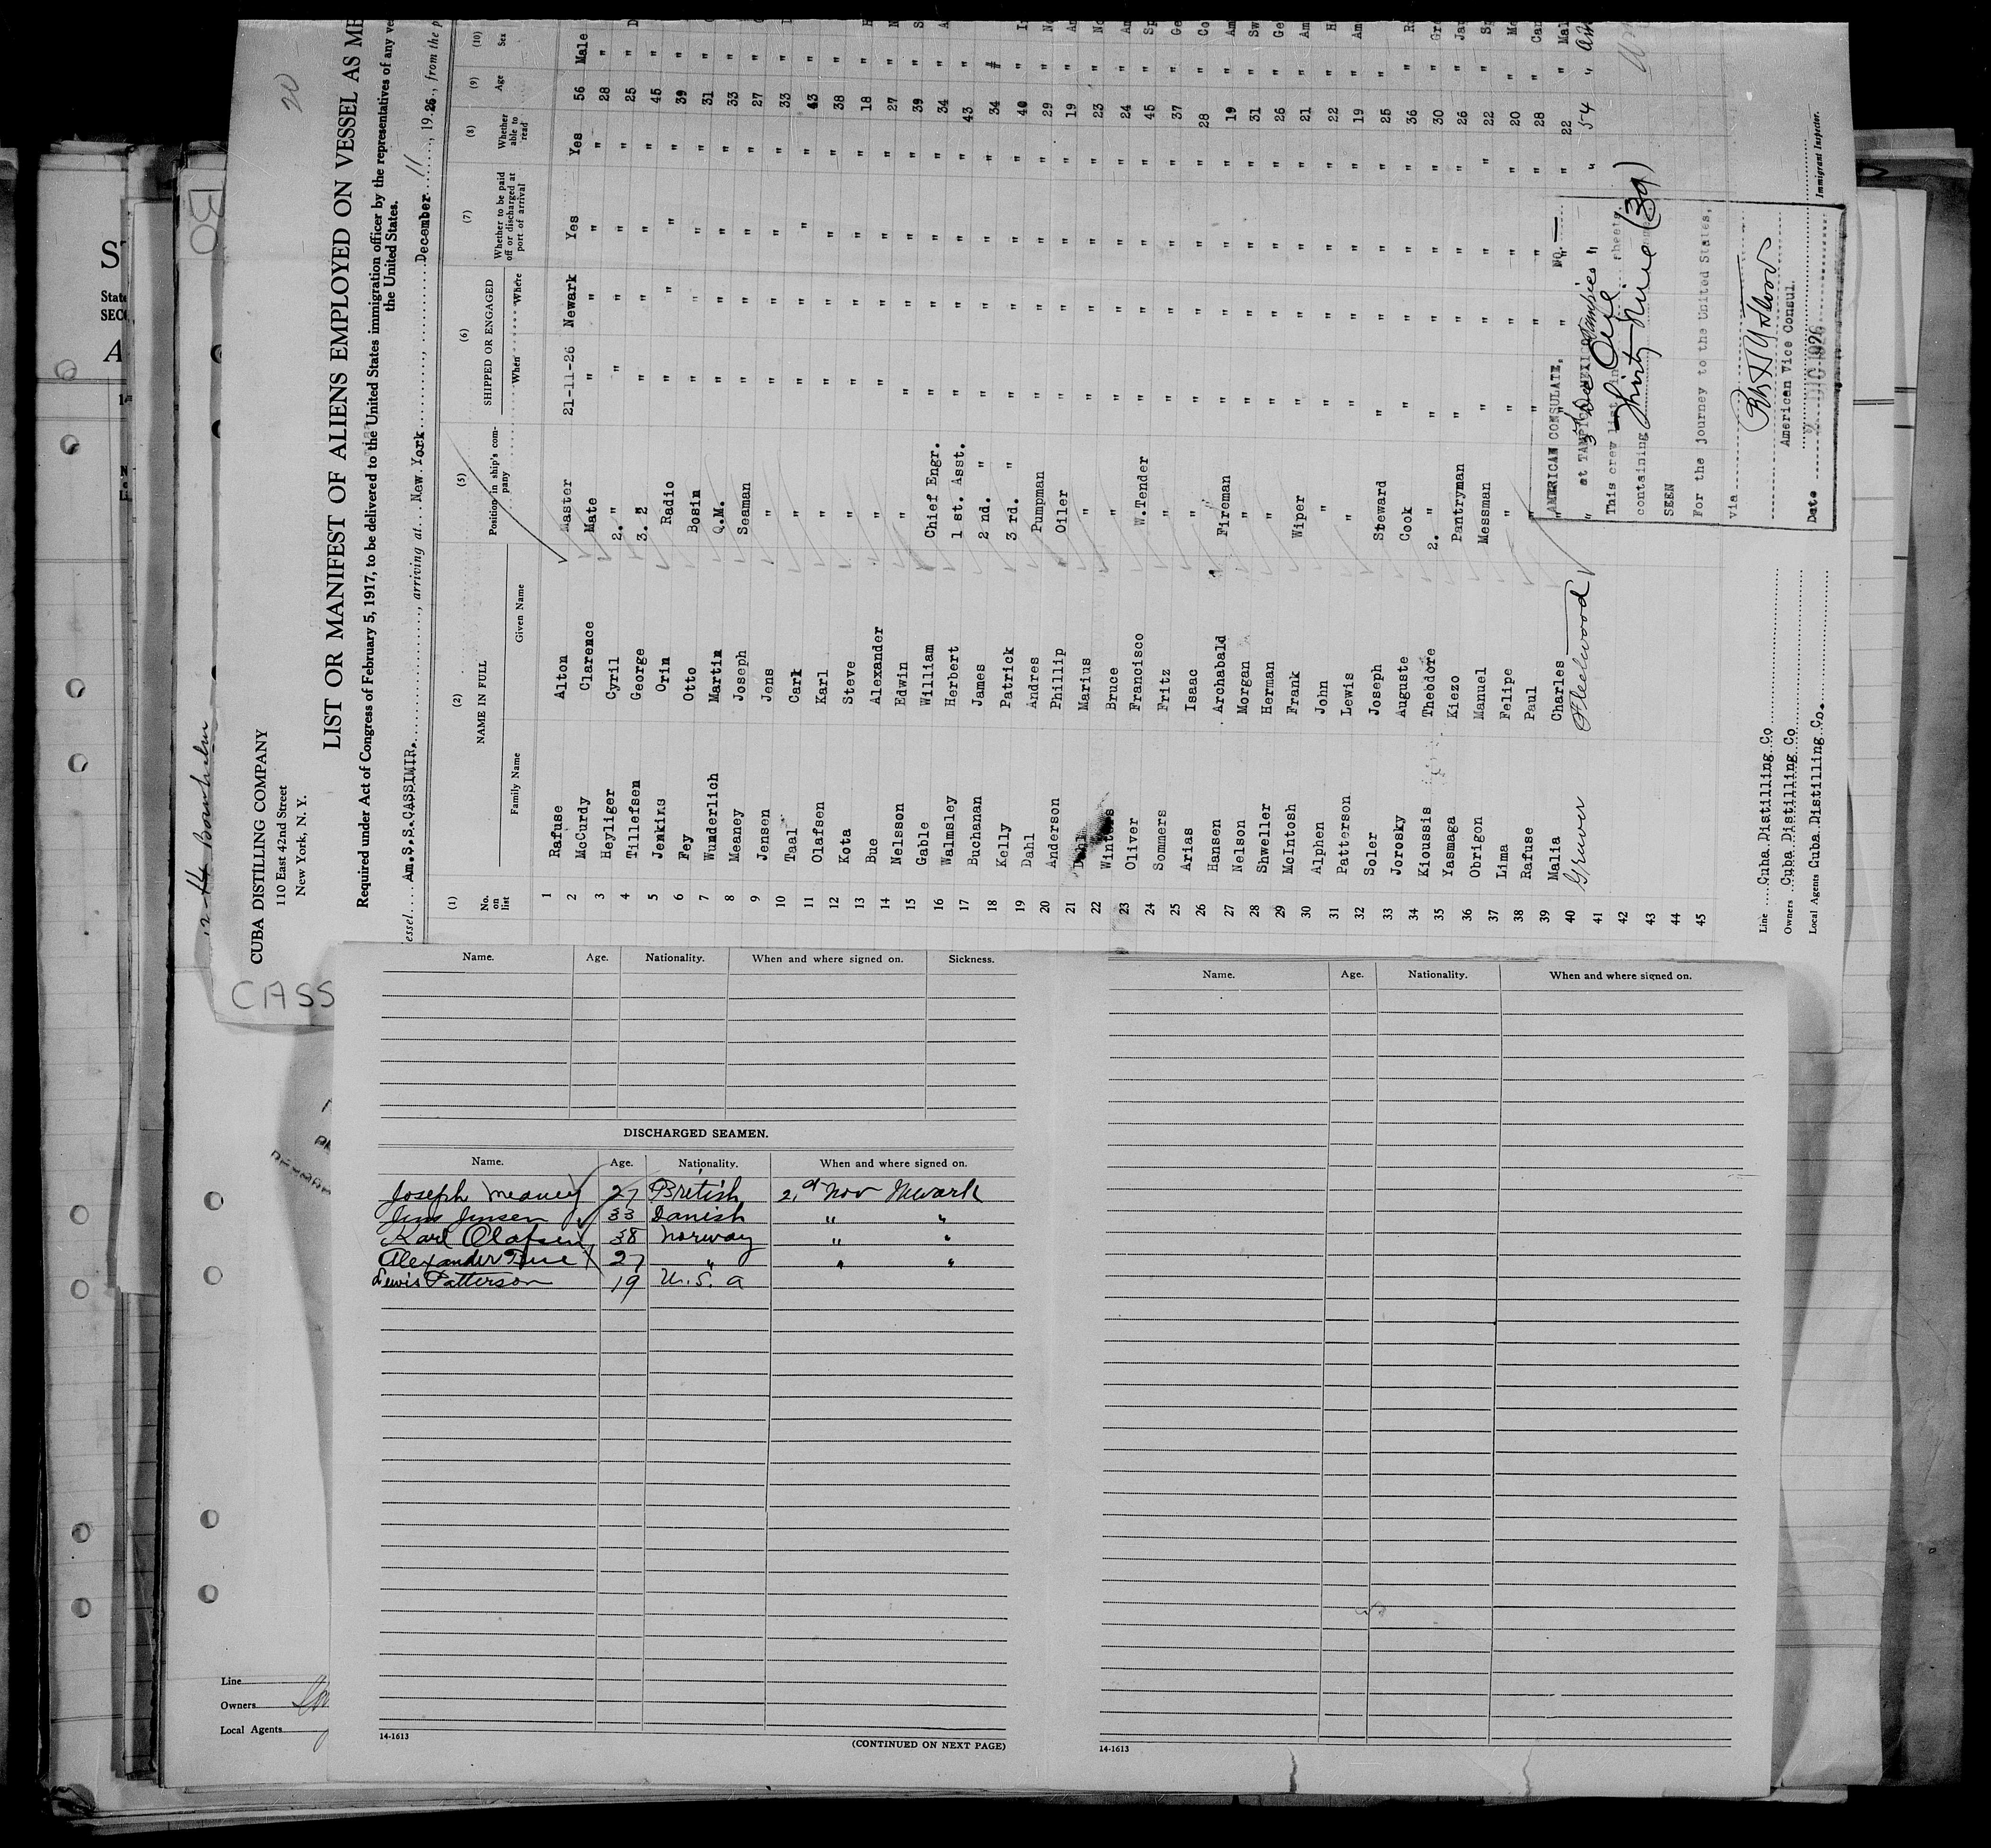 20
CUBA DISTILLING COMPANY
110 East 42nd Street
New York, N. Y.
LIST OR MANIFEST OF ALIENS EMPLOYED ON VESSEL AS
Required under Act of Congress of February 5, 1917, to be delivered to the United States immigration officer by the representatives of any
the United States.
Am.S.S.CASSIMIR., arriving at New York, December 11, 1926, from the
(1) (2) (5) (6) (7) (8) (9) (10)
No. on list NAME IN FULL Position in ship's company SHIPPED OR ENGAGED Whether to be paid off or discharged at port of arrival Whether able to read Age Sex
Family Name Given Name When Where
1 Rafuse Alton Master 21-11-26 Newark Yes Yes 56 Male
2 McCurdy Clarence Mate " " " " 28 "
3 Heyliger Cyril 2. " " " " " 25 "
4 Tillefsen George 3. 2 " " " " 45 "
5 Jenkins Orin Radio " " " " 39 "
6 Fey Otto Bosin " " " " 31 "
7 Wunderlich Martin Q.M. " " " " 33 "
8 Meaney Joseph Seaman " " " " 27 "
9 Jensen Jens " " " " " 33 "
10 Taal Carl " " " " " 43 "
11 Olafsen Karl " " " " " 38 "
12 Kota Steve " " " " " 18 "
13 Bue Alexander " " " " " 27 "
14 Nelsson Edwin " " " " " 39 "
15 Gable William Chief Engr. " " " " 34 "
16 Walmsley Herbert 1 st. Asst. " " " " 43 "
17 Buchanan James 2 nd. " " " " " 34 "
18 Kelly Patrick 3 rd. " " " " " 40 "
19 Dahl Andres Pumpman " " " " 29 "
20 Anderson Phillip Oiler " " " " 19 "
21 Dahl Marius " " " " " 23 "
22 Winters Bruce " " " " " 24 "
23 Oliver Francisco W.Tender " " " " 45 "
24 Sommers Fritz " " " " " 37 "
25 Arias Isaac " " " " " 28 "
26 Hansen Archabald Fireman " " " " 19 "
27 Nelson Morgan " " " " " 31 "
28 Shweller Herman " " " " " 26 "
29 McIntosh Frank Wiper " " " " 21 "
30 Alphen John " " " " " 22 "
31 Patterson Lewis " " " " " 19 "
32 Soler Joseph Steward " " " " 25 "
33 Jorosky Auguste Cook " " " " 36 "
34 Kioussis Theodore 2. " " " " " 30 "
35 Yasmaga Kiezo Pantryman " " " " 26 "
36 Obrigon Manuel Messman " " " " 22 "
37 Lima Felipe " " " " " 20 "
38 Rafuse Paul " " " " " 28 "
39 Malia Charles " " " No " 22 "
40 Gruver Fleetwood " " 54 "
41
42
43
44
45
AMERICAN CONSULATE,
at TAMPICO
This crew list, in One sheets,
containing Thirty Nine (39)
SEEN
For the journey to the United States,
via
American Vice Consul.
Date DEC 1926
Immigrant Inspector.
Line Cuba Distilling Co
Owners Cuba Distilling Co
Local Agents Cuba Distilling Co.
CASS
Name. Age. Nationality. When and where signed on. Sickness.
DISCHARGED SEAMEN.
Name. Age. Nationality. When and where signed on.
Joseph Meaney 27 British 2d Nov Newark
Jens Jensen 33 Danish " "
Karl Olafsen 38 Norway " "
Alexander Bue 27 " " "
Lewis Patterson 19 U.S.A
14-1613
(CONTINUED ON NEXT PAGE)
Name. Age. Nationality. When and where signed on.
14-1613
Line
Owners
Local Agents